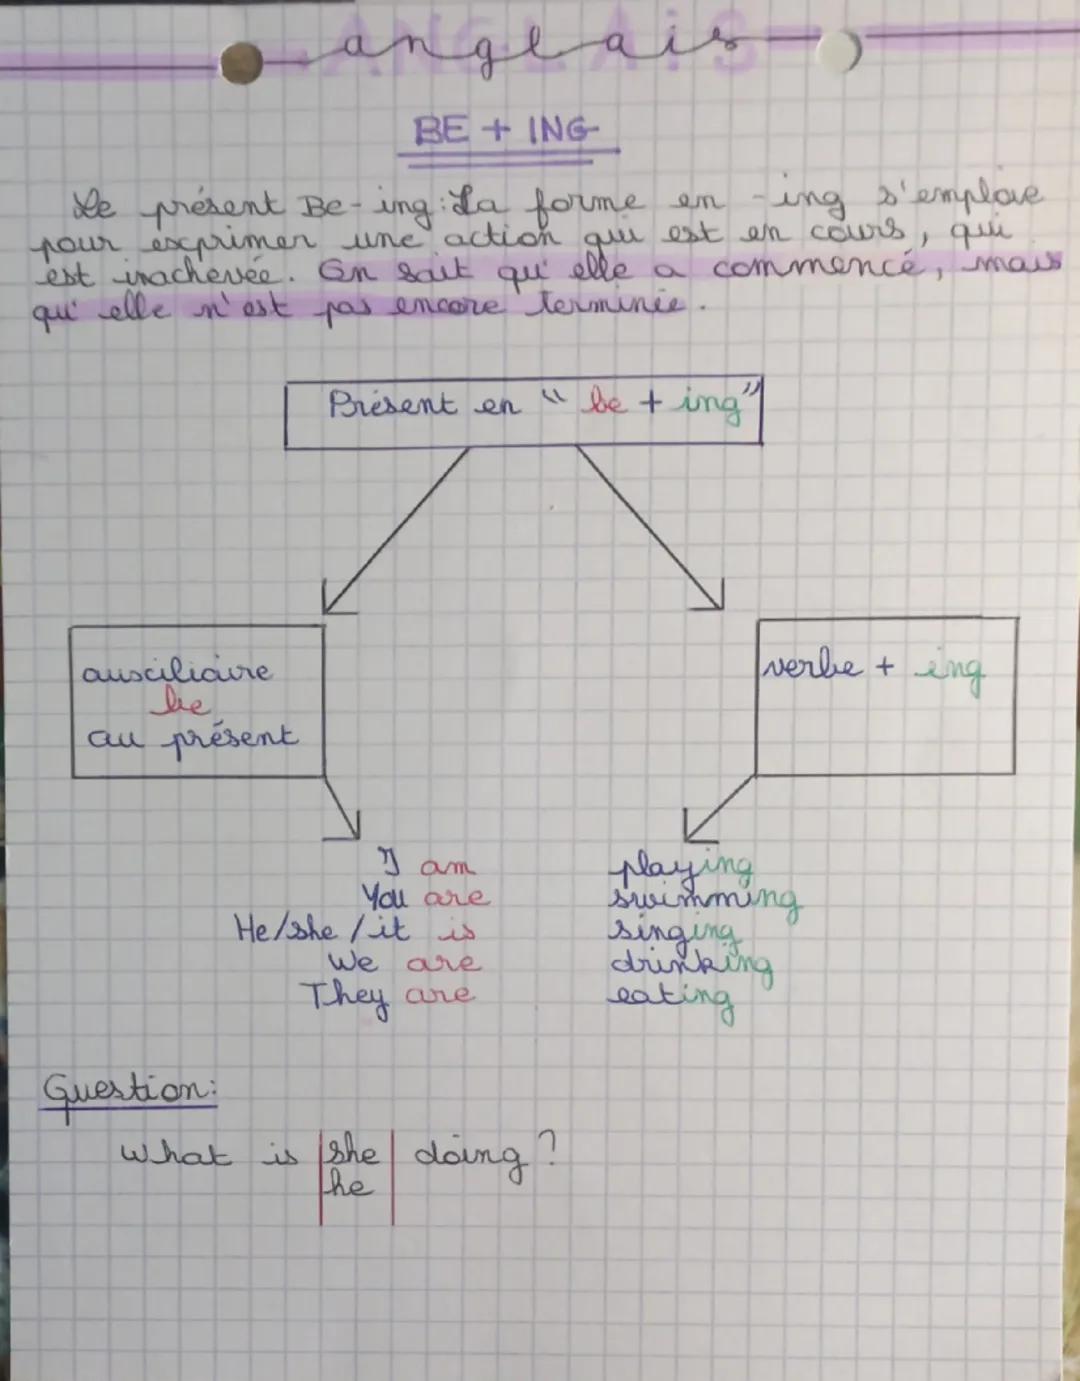 anglais
ANGLAiS
BE + ING
Le présent Be-ing: La forme en -ing s'emploie
pour exprimer une action qui est en cours, qui
est inachevée. On sait qu'elle a commencé, mais
qu'elle n'est pas encore terminée.
Présent en "be + ing"
auxiliaire
be
au présent
verbe + ing
I am playing
You are swimming
He/she/it is singing
We are drinking
They are eating
Question:
What is she doing?
he